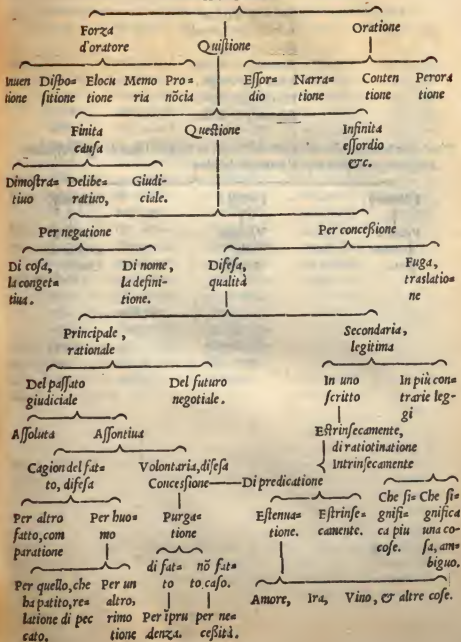 Forza
d'oratore
Quistione
Oratione
Inuen
tione
Dispo=
sitione
Elocu
tione
Memo
ria
Pro=
nõcia
Essor=
dio
Narra=
tione
Conten
tione
Perora
tione
Finita
causa
Questione
Infinita
essordio
&c.
Dimostra=
tiuo
Delibe=
ratiuo,
Giudi-
ciale.
Per negatione
Per concessione
Di cosa,
la conget=
tiua.
Di nome,
la defini=
tione.
Difesa,
qualità
Fuga,
traslatio=
ne
Principale,
rationale
Secondaria,
legitima
Del passato
giudiciale
Del futuro
negotiale.
In uno
scritto
In più con=
trarie leg=
gi
Assoluta
Assontiua
Estrinsecamente,
di ratiotinatione
Intrinsecamente
Cagion del fat=
to, difesa
Volontaria, difesa
Concessione
Di predicatione
Che si=
gnifi=
ca piu
cose.
Che si=
gnifica
una co=
sa, am=
biguo.
Per altro
fatto, com
paratione
Per huo=
mo
Purga=
tione
Estenua=
tione.
Estrinse=
camente.
di fat=
to
nõ fat=
to, caso.
Per quello, che
ha patito, re=
latione di pec
cato.
Per un
altro,
rimo
tione
Per ĩpru
denza.
per ne=
cessità.
Amore, Ira, Vino, & altre cose.